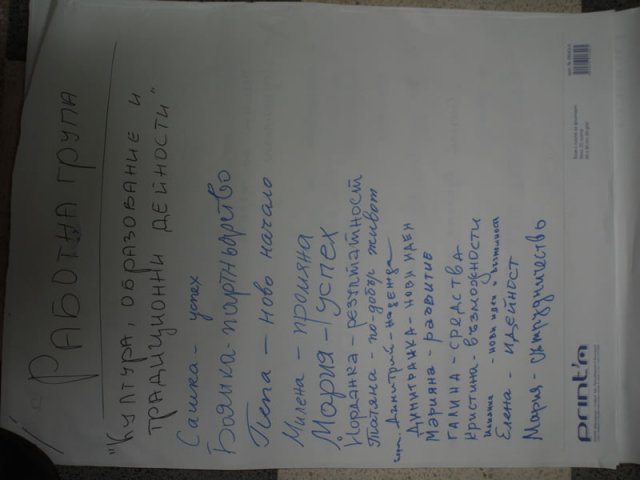 РАБОТНА ГРУПА
"Култура, образование и
традиционни дейности"
Сашка - успех
Боянка - партньорство
Пепа - ново начало
Милена - промяна
Мария - успех
Йорданка - резултатност
Татяна - по-добър живот
Димитрий - надежда
Димитранка - нови идеи
Марияна - развитие
ГАЛИНА - средства
Кристина - възможности
- нови идеи и
Елена - идейност
Мария - сътрудничество
print'A